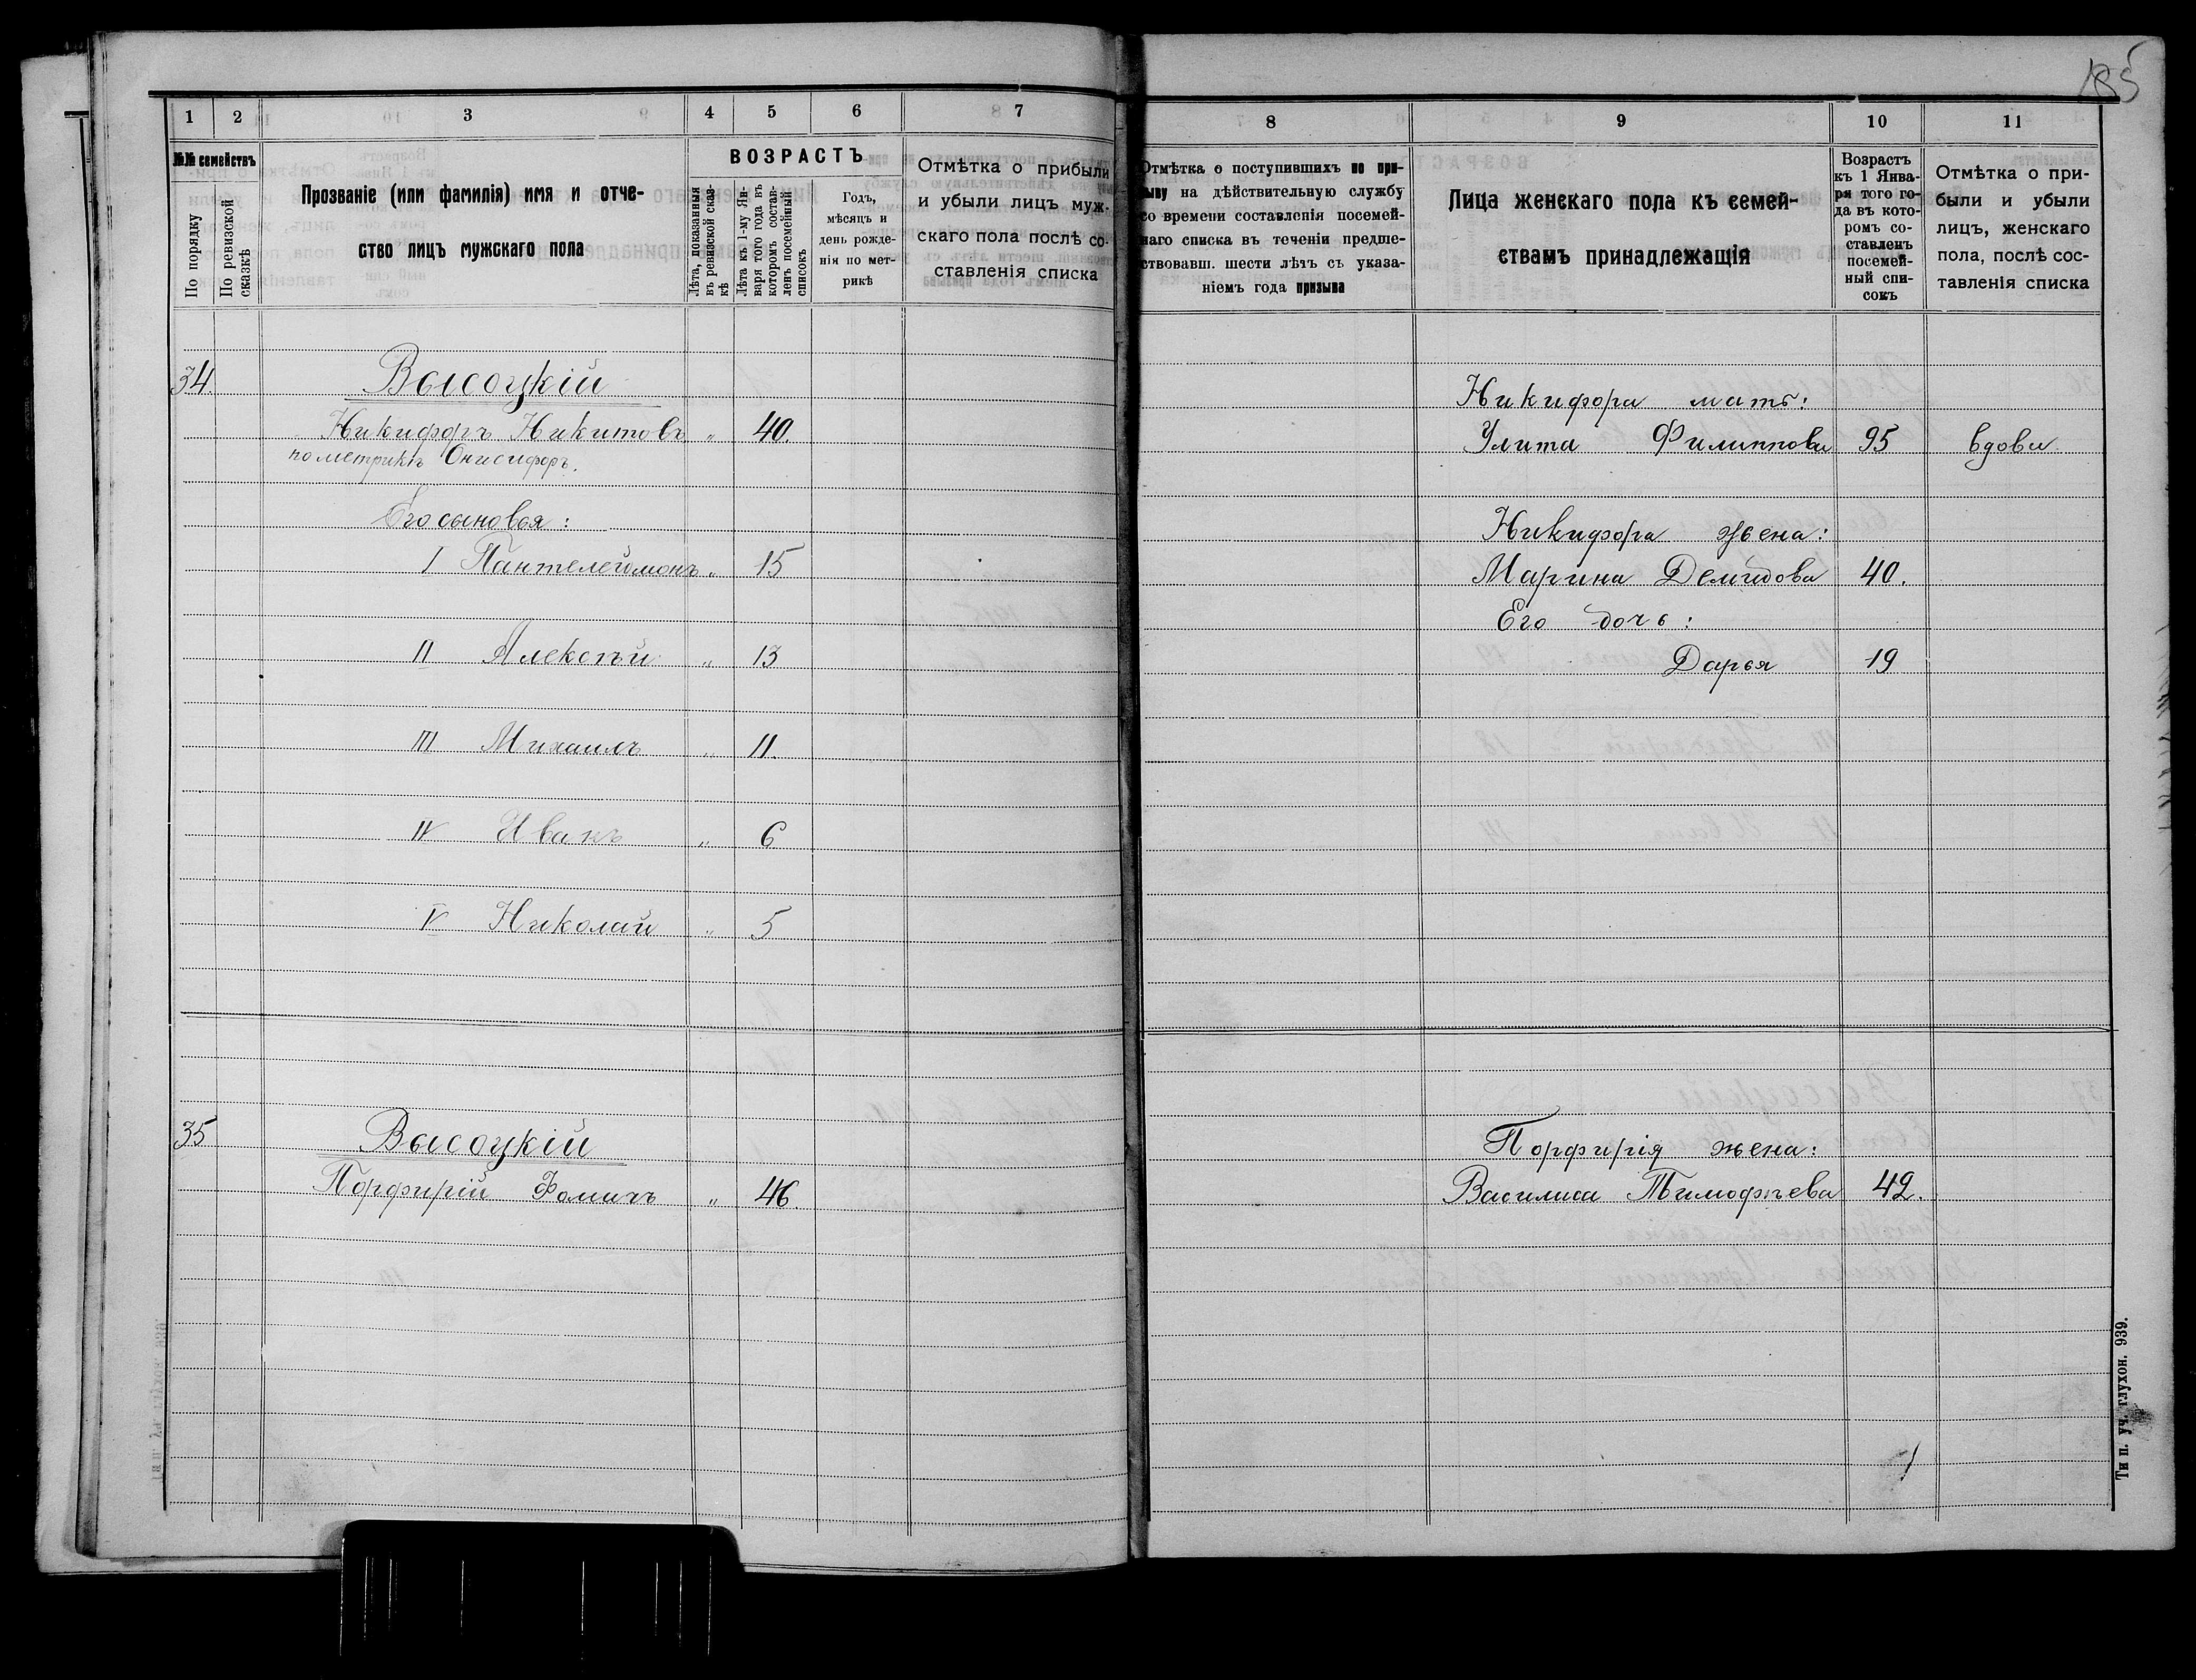 185
1 2 3 4 5 6 7
№№ семействъ
По порядку
По ревизской сказкѣ
Прозваніе (или фамилія) имя и отче-
ство лицъ мужскаго пола
ВОЗРАСТЪ
Лѣта, показанныя
въ ревизской сказ-
кѣ
Лѣта къ 1-му Ян-
варя того года въ
которомъ состав-
ленъ посемейный
списокъ
Годъ,
мѣсяцъ и
день рожде-
нія по мет-
рикѣ
Отмѣтка о прибыли
и убыли лицъ муж-
скаго пола послѣ со-
ставленія списка
34.
Высоцкій
Никифоръ Никитовъ „ 40.
по метрикѣ Онисифоръ.
Его сыновья:
I Пантелеймонъ „ 15
II Алексѣй „ 13
III Михаилъ „ 11.
IV Иванъ „ 6
V Николай „ 5
35
Высоцкій
Порфирій Фомичъ „ 46.
8 9 10 11
Отмѣтка о поступившихъ по при-
зыву на дѣйствительную службу
со времени составленія посемей-
наго списка въ теченіи предше-
ствовавш. шести лѣтъ съ указа-
ніемъ года призыва
Лица женскаго пола къ семей-
ствамъ принадлежащія
Возрастъ
къ 1 Янва-
ря того го-
да въ кото-
ромъ со-
ставленъ
посемей-
ный спи-
сокъ
Отмѣтка о при-
были и убыли
лицъ, женскаго
пола, послѣ сос-
тавленія списка
Никифора мать:
Улита Филиппова 95 вдова
Никифора жена:
Марина Демидова 40.
Его дочь:
Дарья 19
Порфирія жена:
Василиса Тимофѣева 42.
Тип. уч. глухон. 939.